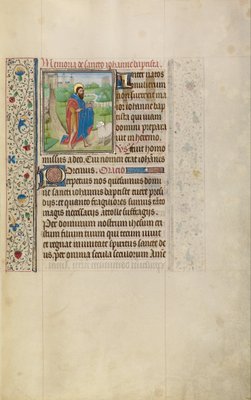 Memoria de sancto iohanne baptista.
Inter natos
mulierum
non surrexit ma
ior iohanne bap
tista qui viam
domino prepara
vit in heremo.
Fuit homo
missus a deo. Cui nomen erat iohanes
Oremus. Oracio
Perpetuis nos quesumus domi
ne sancti iohannis baptiste tuere presi
dijs: et quanto fragiliores sumus tāto
magis necessarijs attolle suffragijs.
Per dominum nostrum ihesum cri
stum filium tuum qui tecum vivit
et regnat in unitate spiritus sancti de
us. per omnia secula seculorum Ame